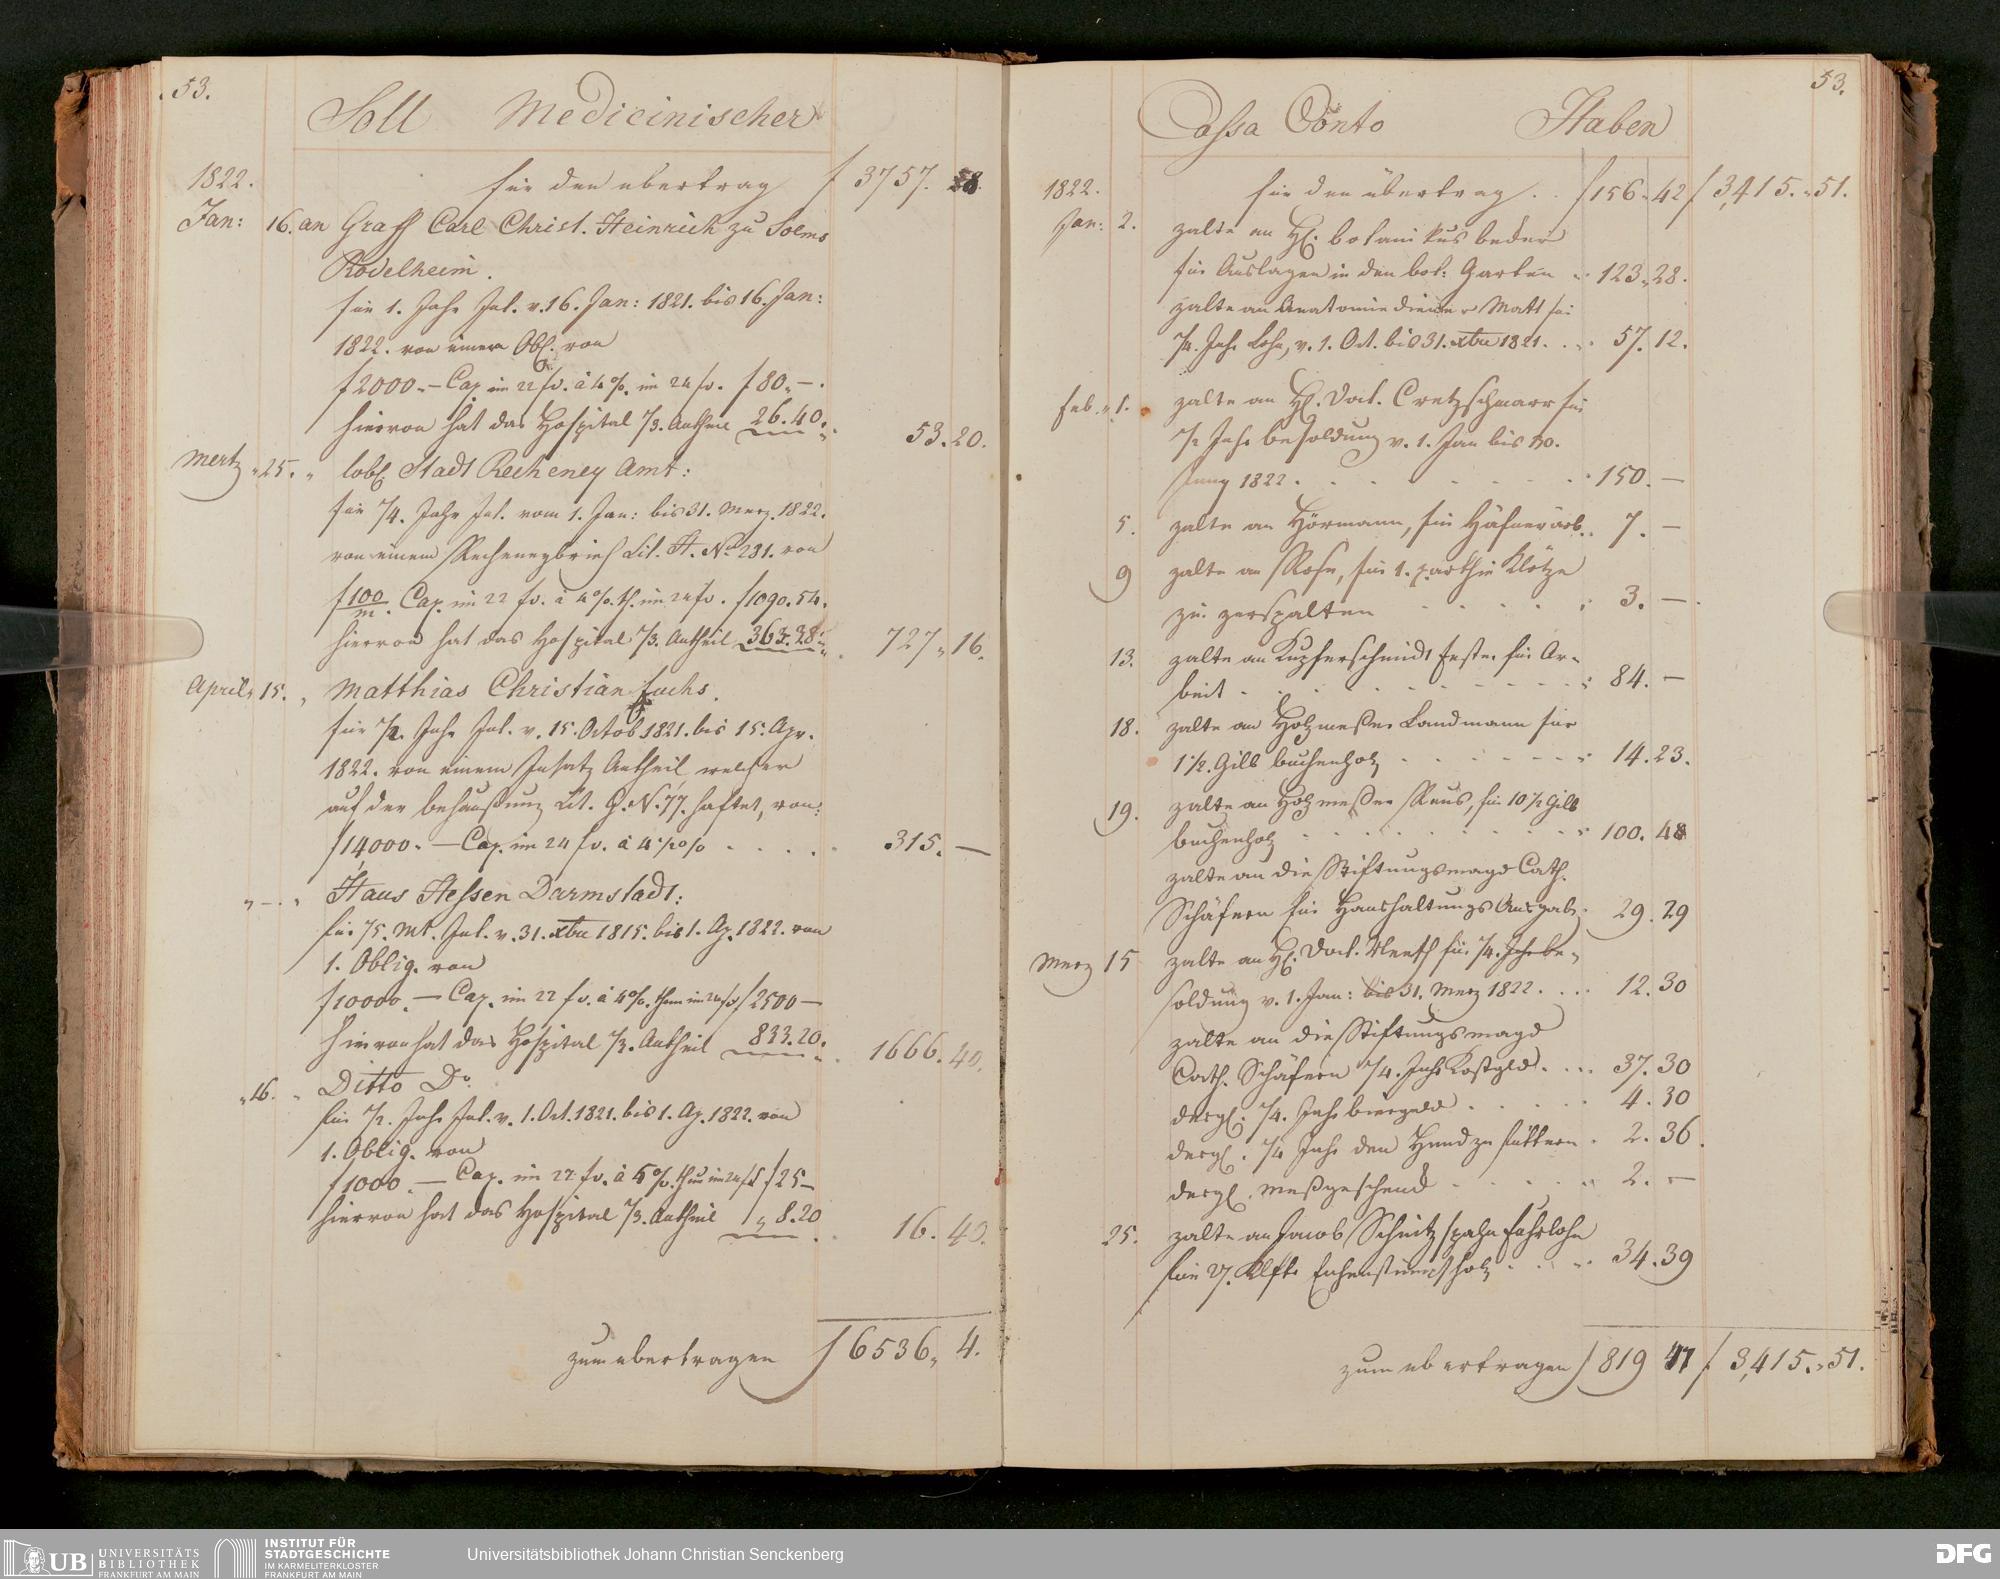 53.
Soll Medicinischer
1822. für den übertrag f 3757. 28.
Jan: 16. an Graff Carl Christ. Heinrich zu Solms
Rödelheim.
für 1. Jahr Int. v. 16. Jan: 1821. bis 16. Jan:
1822. von einer Obl. von
f 2000.— Cap. im 22 fs. à 4%. im 24 fs. f 80.—.
hiervon hat das Hospital 1/3. Antheil 26.40. 53.20.
Mertz 25. " löbl. Stadt Recheney Amt:
für 1/4. Jahr Int. vom 1. Jan: bis 31. Merz. 1822.
von einem Recheneybrief Lit. A. No 231. von
f 100/m. Cap. im 22 fs. à 4%. th. im 24 fs. f 1090.54.
hiervon hat das Hospital 1/3. Antheil 363.38. 727.16.
April 15. " Matthias Christian Fuchs.
für 1/2. Jahr Int. v. 15. Octob 1821. bis 15. Apr.
1822. von einem Insatz Antheil, welcher
auf der Behaußung Lit. G. N. 77. haftet, von:
f 14000.— Cap. im 24 fs. à 4 1/2% . . . . 315.—
" —. " Haus Hessen Darmstadt:
für 75. Mt. Int. v. 31. xbr 1815. bis 1. Ap. 1822. von
1. Oblig. von
f 10000.— Cap. im 22 fs. à 4%. thun im 24 fs f 2500—
hiervon hat das Hospital 1/3. Antheil 833.20. 1666.40.
" 16. " Ditto Do.
für 1/2. Jahr Int. v. 1. Oct. 1821. bis 1. Ap. 1822. von
1. Oblig. von
f 1000.— Cap. im 22 fs. à 5%. thun im 24 fs f 25—
hiervon hat das Hospital 1/3. Antheil " 8.20 16.40.
zum übertragen f 6536. 4.
53.
Cassa Conto Haben
1822. für den übertrag . . f 156.42 f 3,415.51.
Jan: 2. zalte an H. botanikus Beder
für Auslagen in den bot: Garten 123.28.
zalte an Anatomiediener Matt für
1/4. Jahr Lohn, v. 1. Oct. bis 31. xbr 1821. . . . 57.12.
Feb. 1. zalte an H. Doct. Cretzschmarr für
1/2 Jahr besoldung v. 1. Jan bis 30.
Juny 1822 . . . 150.—
5. zalte an Hörmann, für Häfnerarb. 7.—
9 zalte an Rose, für 1. parthie Klötze
zu zerspalten . . . . . 3.—
13. zalte an Kupferschmidt Fester für Ar-
beit . . . . . . . 84.—
18. zalte an Holzmeßer Landmann für
1 1/2. Gilb buchenholz . . . . . 14.23.
19. zalte an Holzmeßer Reus, für 10 1/2 Gilb
buchenholz . . . . . . . 100.48
zalte an die Stiftungsmagd Cath.
Schäfern für Haushaltungs Ausgab. 29.29
Merz 15 zalte an H. Doct. Neeff für 1/4. Jahr be-
soldung v. 1. Jan: bis 31. Merz 1822 . . . 12.30
zalte an die Stiftungsmagd
Cath. Schäfern 1/4. Jahr Kostgeld . . . 37.30
dergl. 1/4. Jahr biergeld . . . . 4.30
dergl. 1/4 Jahr den Hund zu füttern . 2.36.
dergl. meßgeschenk . . . . 2.—
25. zalte an Jacob Schnitzspahn Fahrlohn
für 7. Klftr holz . . 34.39
zum übertragen f 819 47 f 3,415.51.
UB UNIVERSITÄTS
BIBLIOTHEK
FRANKFURT AM MAIN
INSTITUT FÜR
STADTGESCHICHTE
IM KARMELITERKLOSTER
FRANKFURT AM MAIN
Universitätsbibliothek Johann Christian Senckenberg
DFG